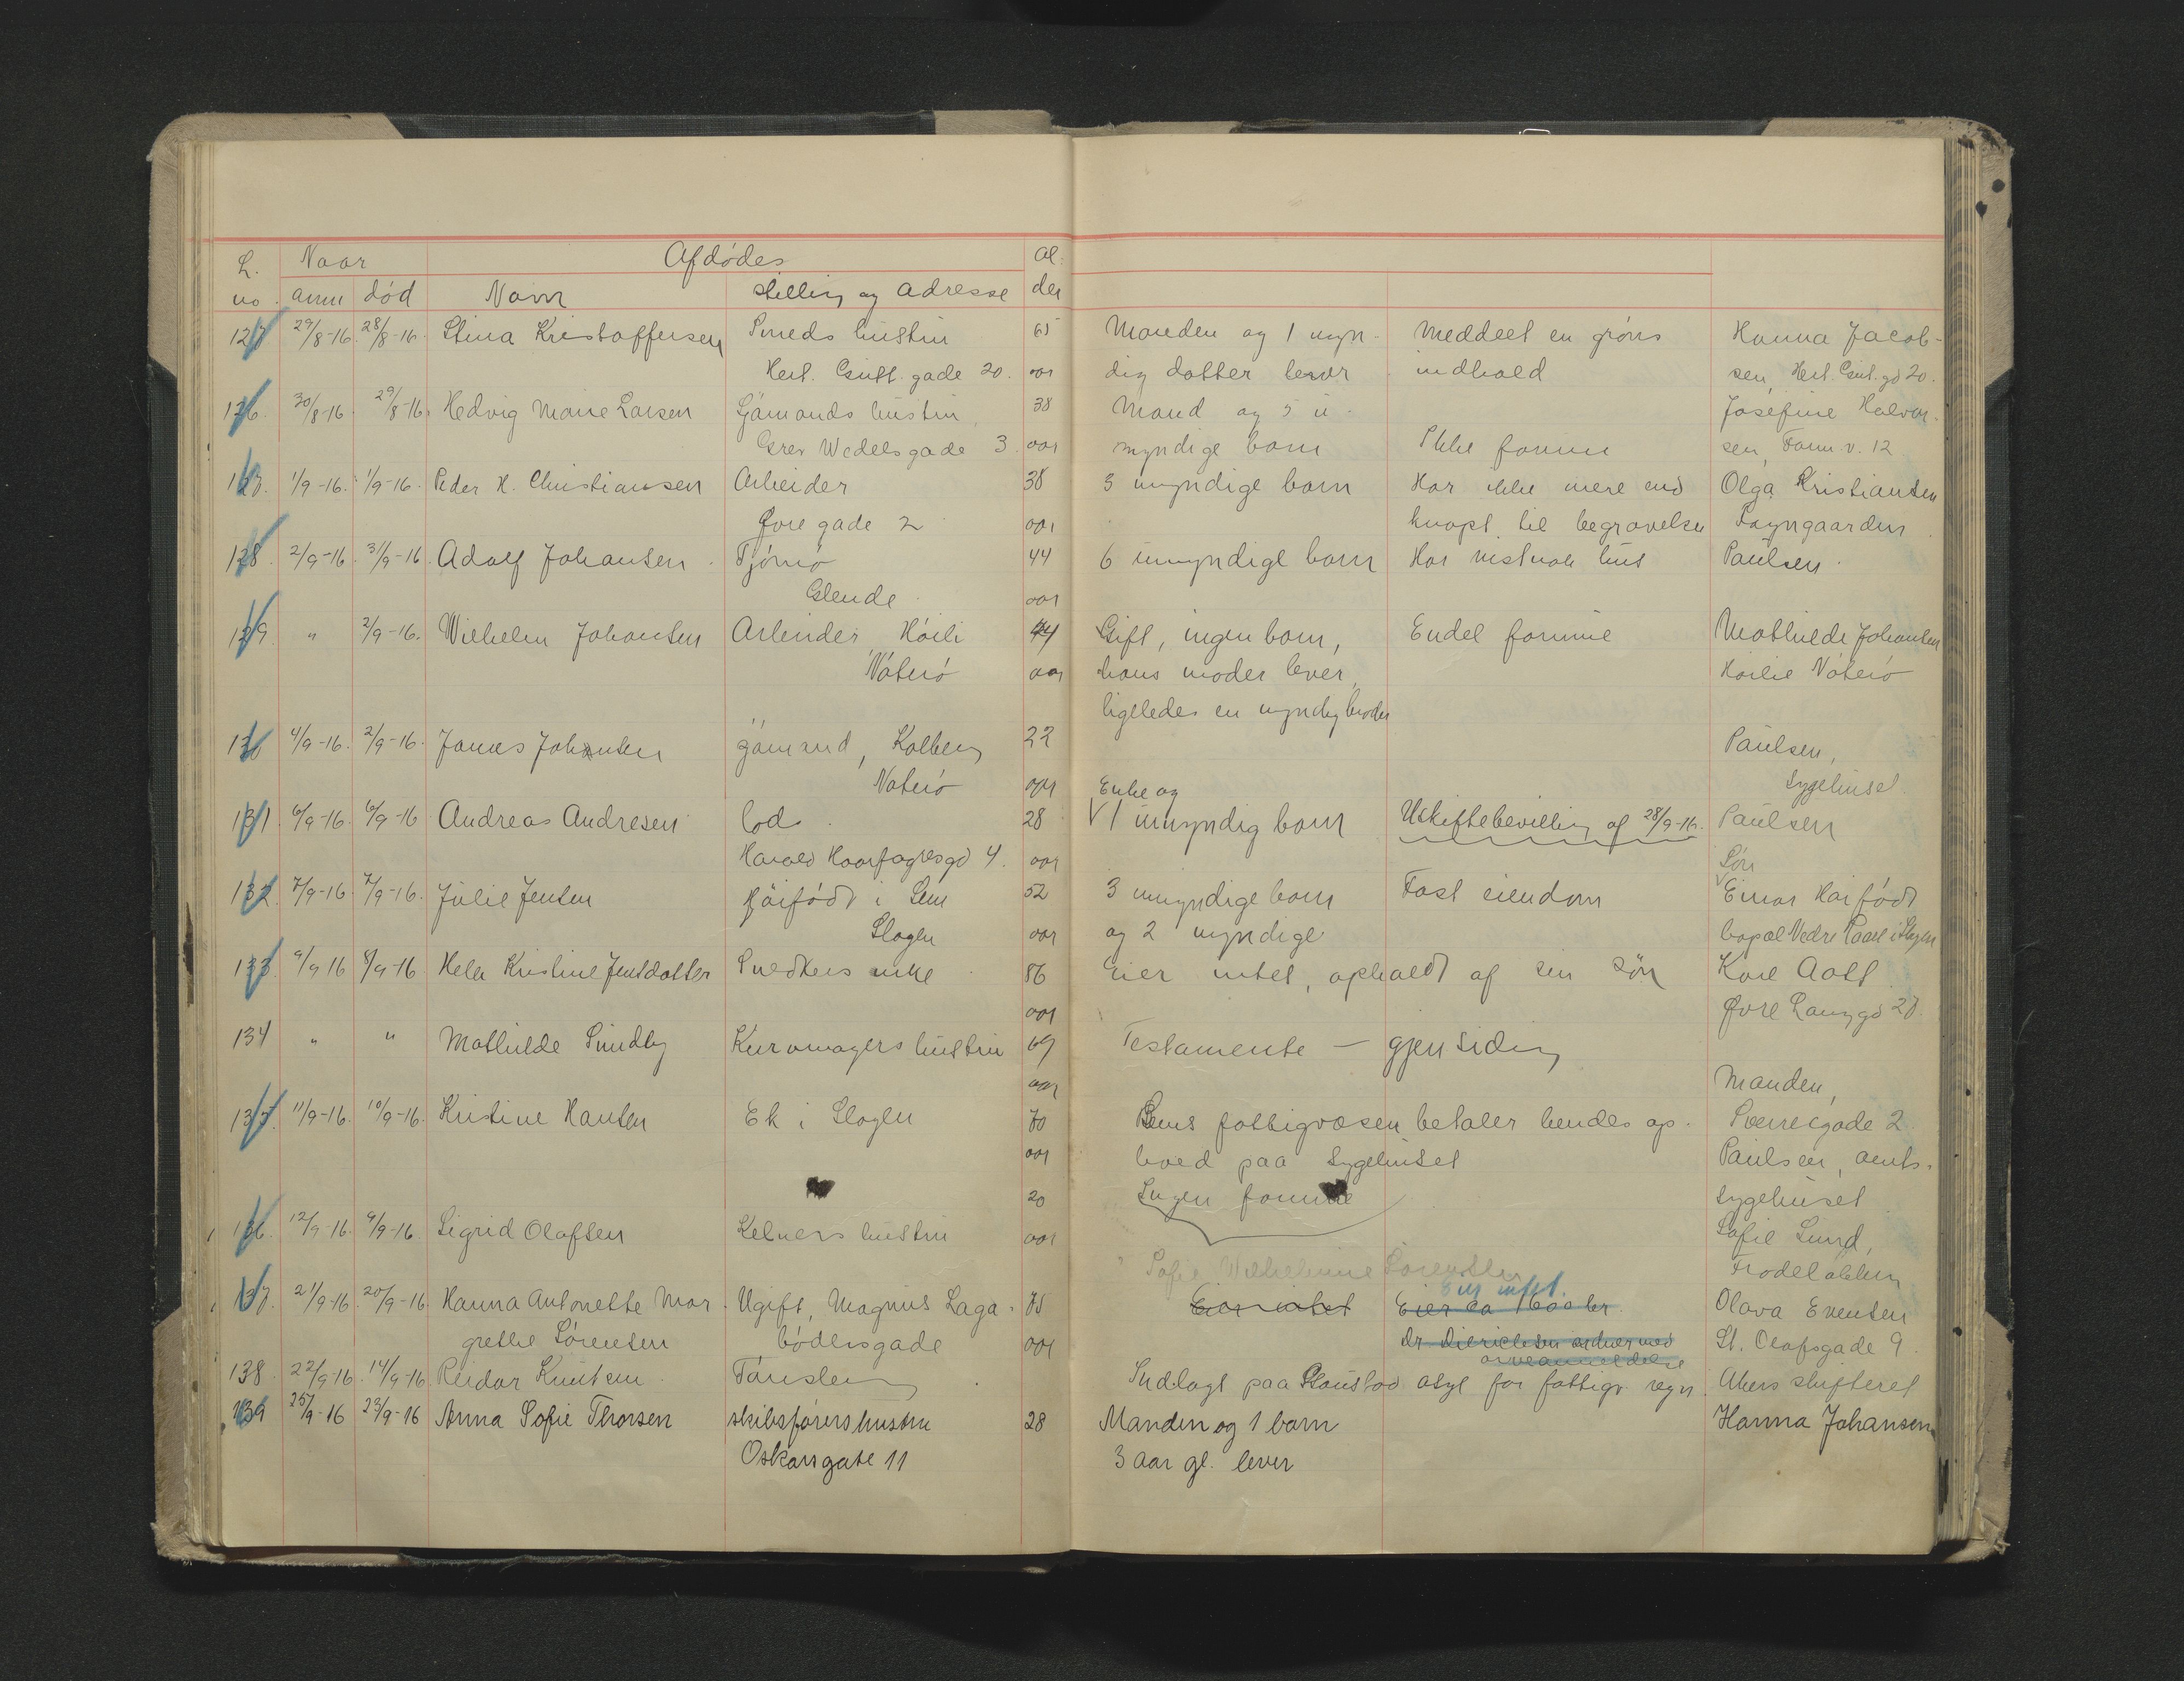 L. Naar Afdödes Al
no. anm död Navn stilling og adresse der
29/8-16. 28/8-16. Stina Kristoffersen Smeds hustru 65 Manden og 1 myn- Meddeel en gröns Hanna Jacob-
Hert. Gust. gade 20. aar dig datter lever indhold sen, Hert. Gust. gd 20.
126. 30/8-16. 29/8-16. Hedvig Marie Larsen Sjömands hustru, 38 Mand og 5 u- Josefine Halvor-
Grev Wedelsgade 3. aar myndige barn Ikke formue sen, Farm. v. 12
127. 1/9-16. 1/9-16. Peder H. Christiansen Arbeider 38 3 umyndige barn Har ikke mere end Olga Kristiansen
Övre gade 2 aar knapt til begravelse
128. 2/9-16. 31/9-16. Adolf Johansen Tjömö 44 6 umyndige barn Har hus Paulsen
Glende aar
129 " 2/9-16. Wilhelm Johansen Arbeider, Höili 44 Gift, ingen barn, Endel formue Mathilde Johansen
Nöterö aar hans moder lever, Höilie Nöterö
ligeledes en myndig broder
130 4/9-16. 2/9-16. James Johansen Sjömand, Kolberg 22 Paulsen,
Nöterö aar Enke og Sygehuset.
131. 6/9-16. 6/9-16 Andreas Andresen Lods. 28 1 umyndig barn Uskiftebevilling af 28/9-16. Paulsen
Harald Haarfagresgd 4. aar Sön
132 7/9-16. 7/9-16. Julie Jensen i Sem 52 3 umyndige barn Fast eiendom Einar
Slagen aar og 2 myndige bopæl Vedre i Slagen
133. 9/9 16 8/9-16 Hela Kristine Jensdatter Snedkers enke 86 Eier intet, ophold af sin sön Karl Aall
aar Övre Langgd 28.
134 " " Mathilde Sundby Kurvmagers hustru 69 Testamente — gjensidig
aar Manden,
135. 11/9-16. 10/9-16. Kristine Hansen Ek i Slagen 70 Sems fattigvæsen betaler hendes op-
aar hold paa Sygehuset Paulsen, amts-
20 Ingen formue sygehuset
136. 12/9-16. 9/9-16. Sigrid Olafsen Kelners hustru aar Sofie Lund,
Sofie Wilhelmine Sörensen
Eier intet.
137. 21/9-16. 20/9-16 Hanna Antonette Mar- Ugift, Magnus Laga- 75 Eier intet Eier ca 1600 kr. Olava Evensen
grethe Sörensen bödersgade aar Dr Dierichsen ordner med St. Olafsgade 9.
arveanmeldelse
138. 22/9-16. 14/9-16. Reidar Knutsen Tönsberg Indlagt paa asyl for fattigv regn. Akers skifteret
139 25/9-16 23/9-16 Anna Sofie Thorsen skibsförers hustru 28 Manden og 1 barn Hanna Johansen
Oskarsgate 11 3 aar gl. lever